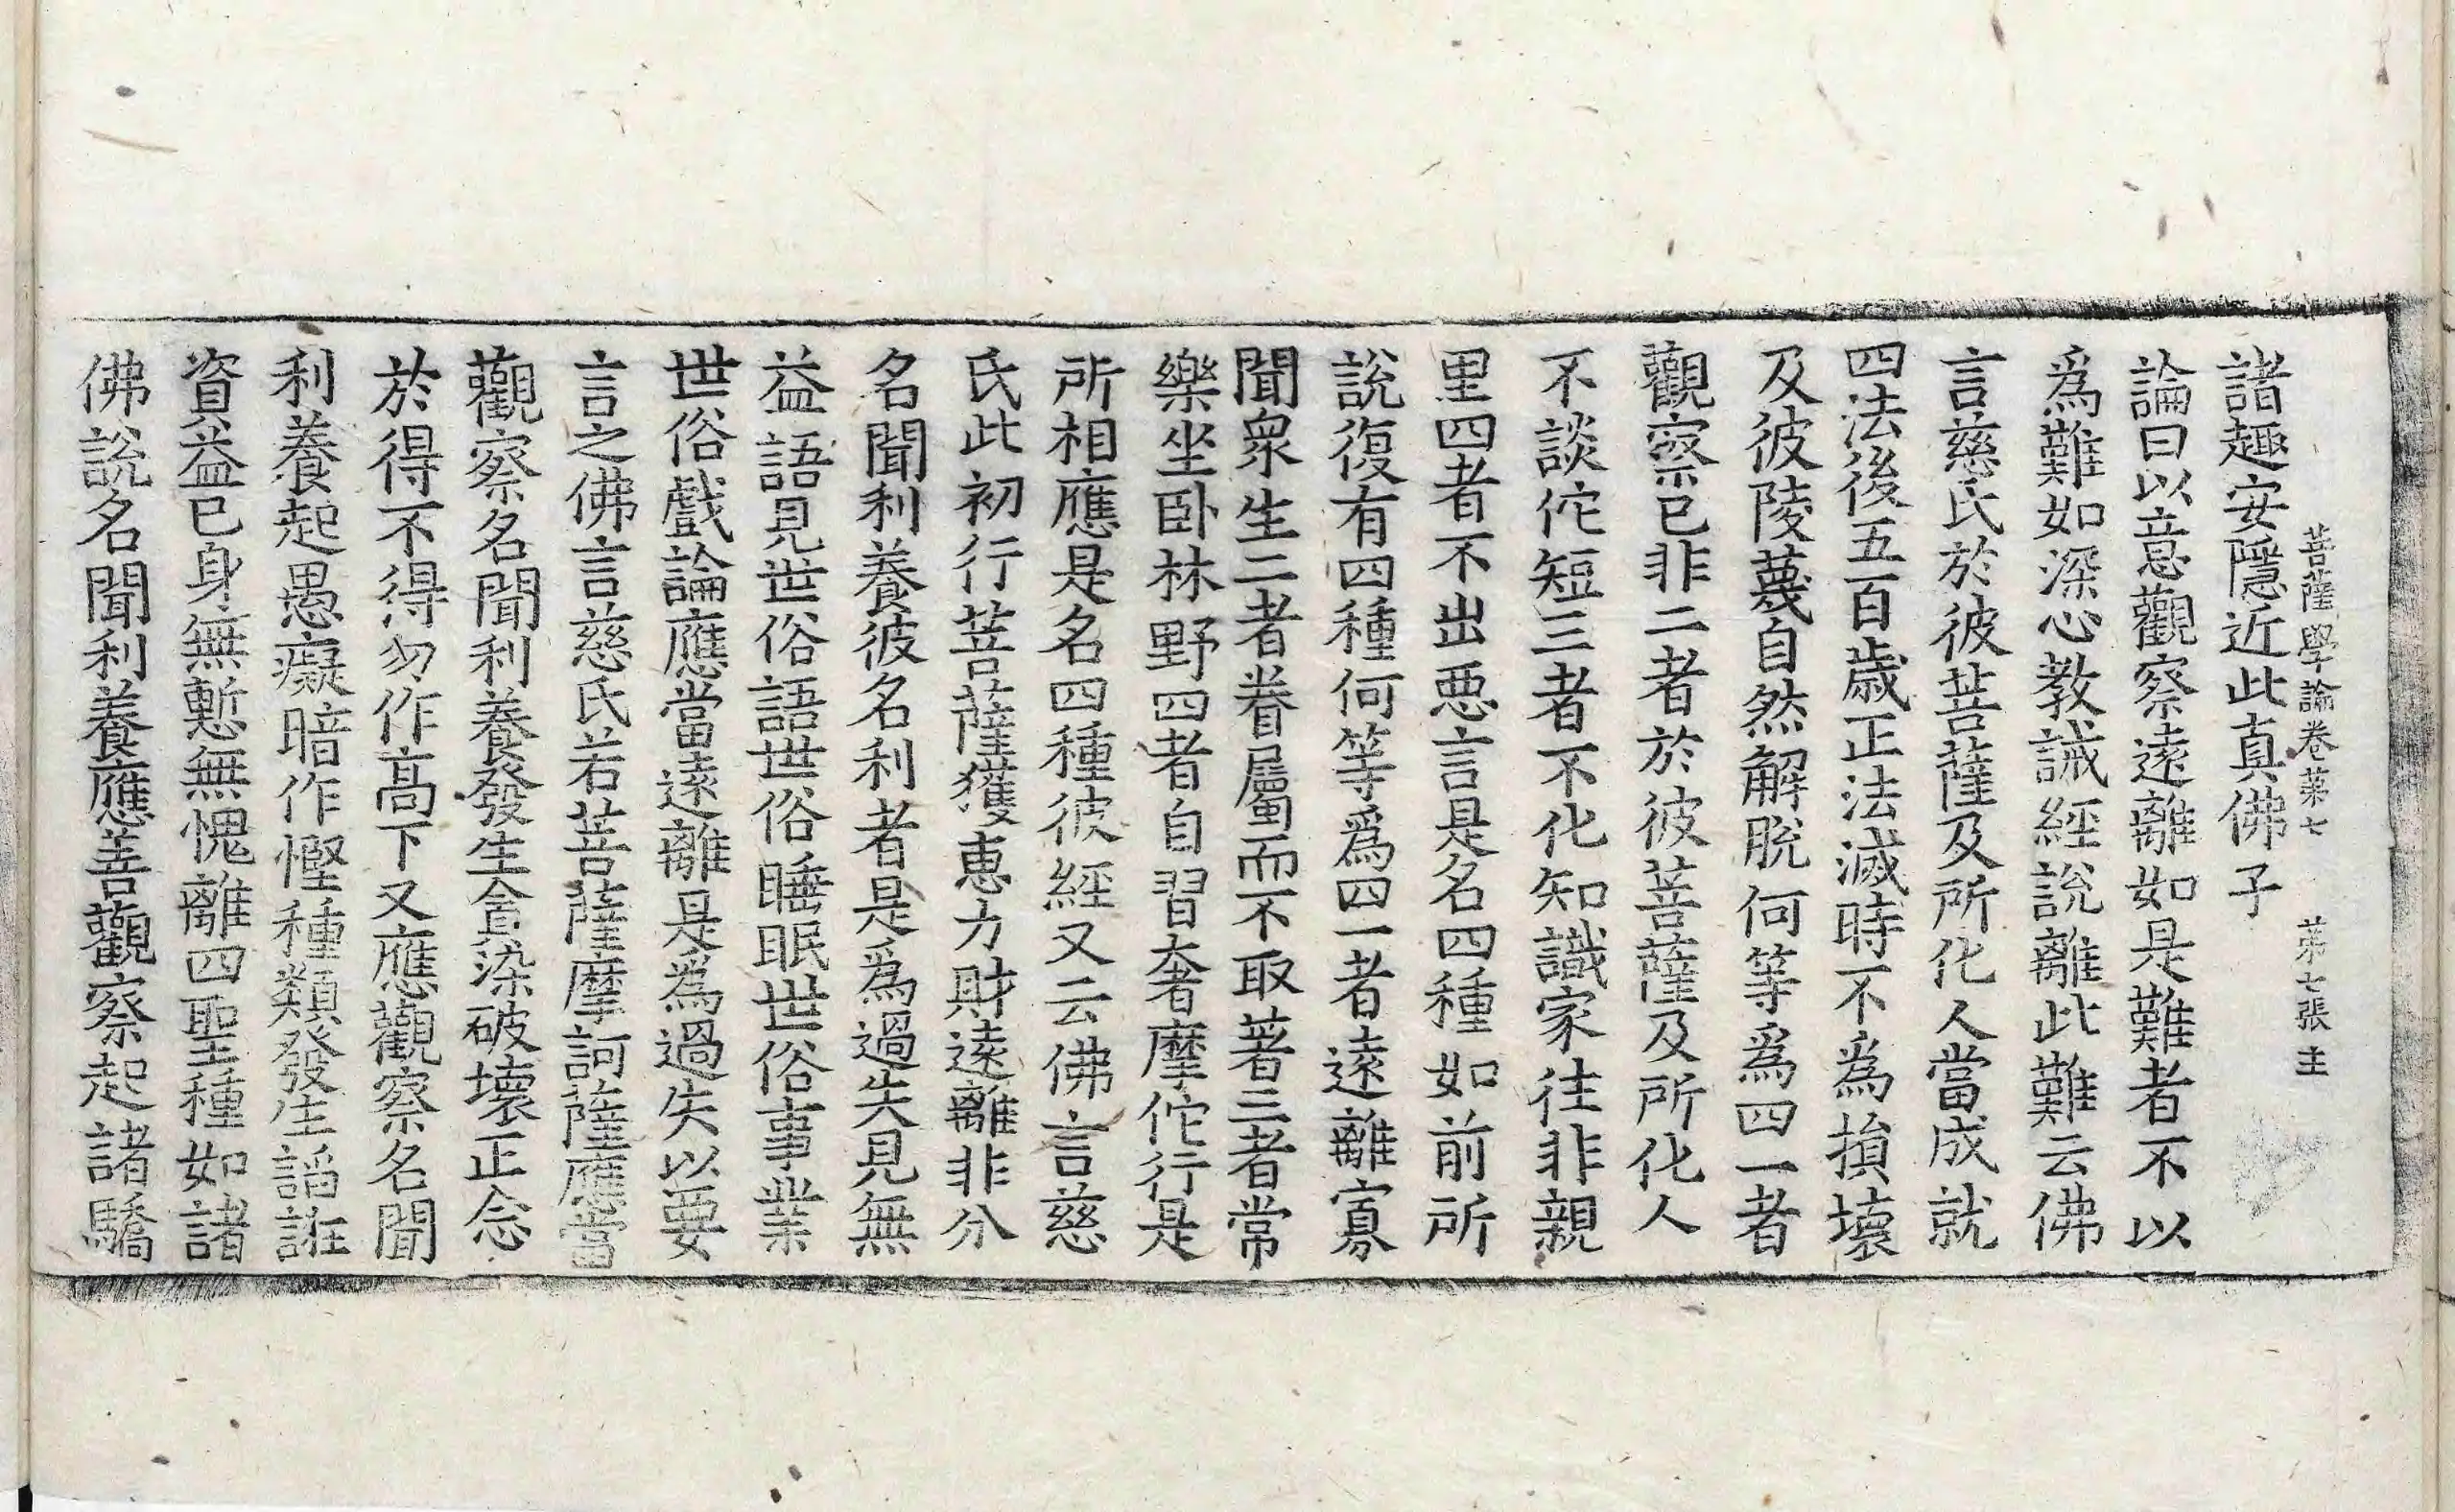 菩薩學論卷苐七 苐七張 主
諸趣安隱近此真佛子
論曰以意觀察遠離如是難者不以
爲難如深心教誡經說離此難云佛
言慈氏於彼菩薩及所化人當成就
四法後五百歳正法滅時不爲損壞
及彼陵蔑自然解脫何等爲四一者
觀察已非二者於彼菩薩及所化人
不談佗短三者不化知識家往非親
里四者不出惡言是名四種如前所
說復有四種何等爲四一者遠離寡
聞衆生二者眷屬而不取著三者常
樂坐卧林野四者自習奢摩佗行是
所相應是名四種彼經又云佛言慈
氏此初行菩薩獲恵力財遠離非分
名聞利養彼名利者是爲過失見無
益語見世俗語世俗睡眠世俗事業
世俗戲論應當遠離是爲過失以要
言之佛言慈氏若菩薩摩訶薩應當
觀察名聞利養發生貪染破壞正念
於得不得勿作高下又應觀察名聞
利養起愚癡暗作慳種類發生謟誑
資益已身無慙無愧離四聖種如諸
佛說名聞利養應善觀察起諸驕